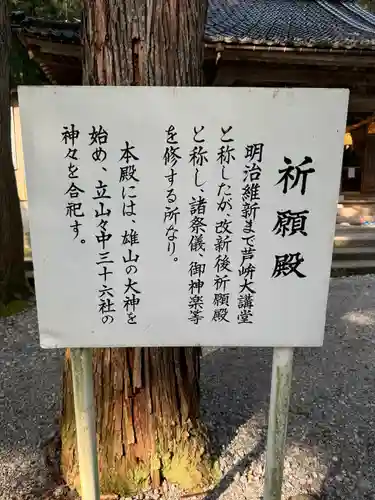 祈願殿
明治維新まで芦峅大講堂
と称したが、改新後祈願殿
と称し、諸祭儀、御神楽等
を修する所なり。
本殿には、雄山の大神を
始め、立山々中三十六社の
神々を合祀す。